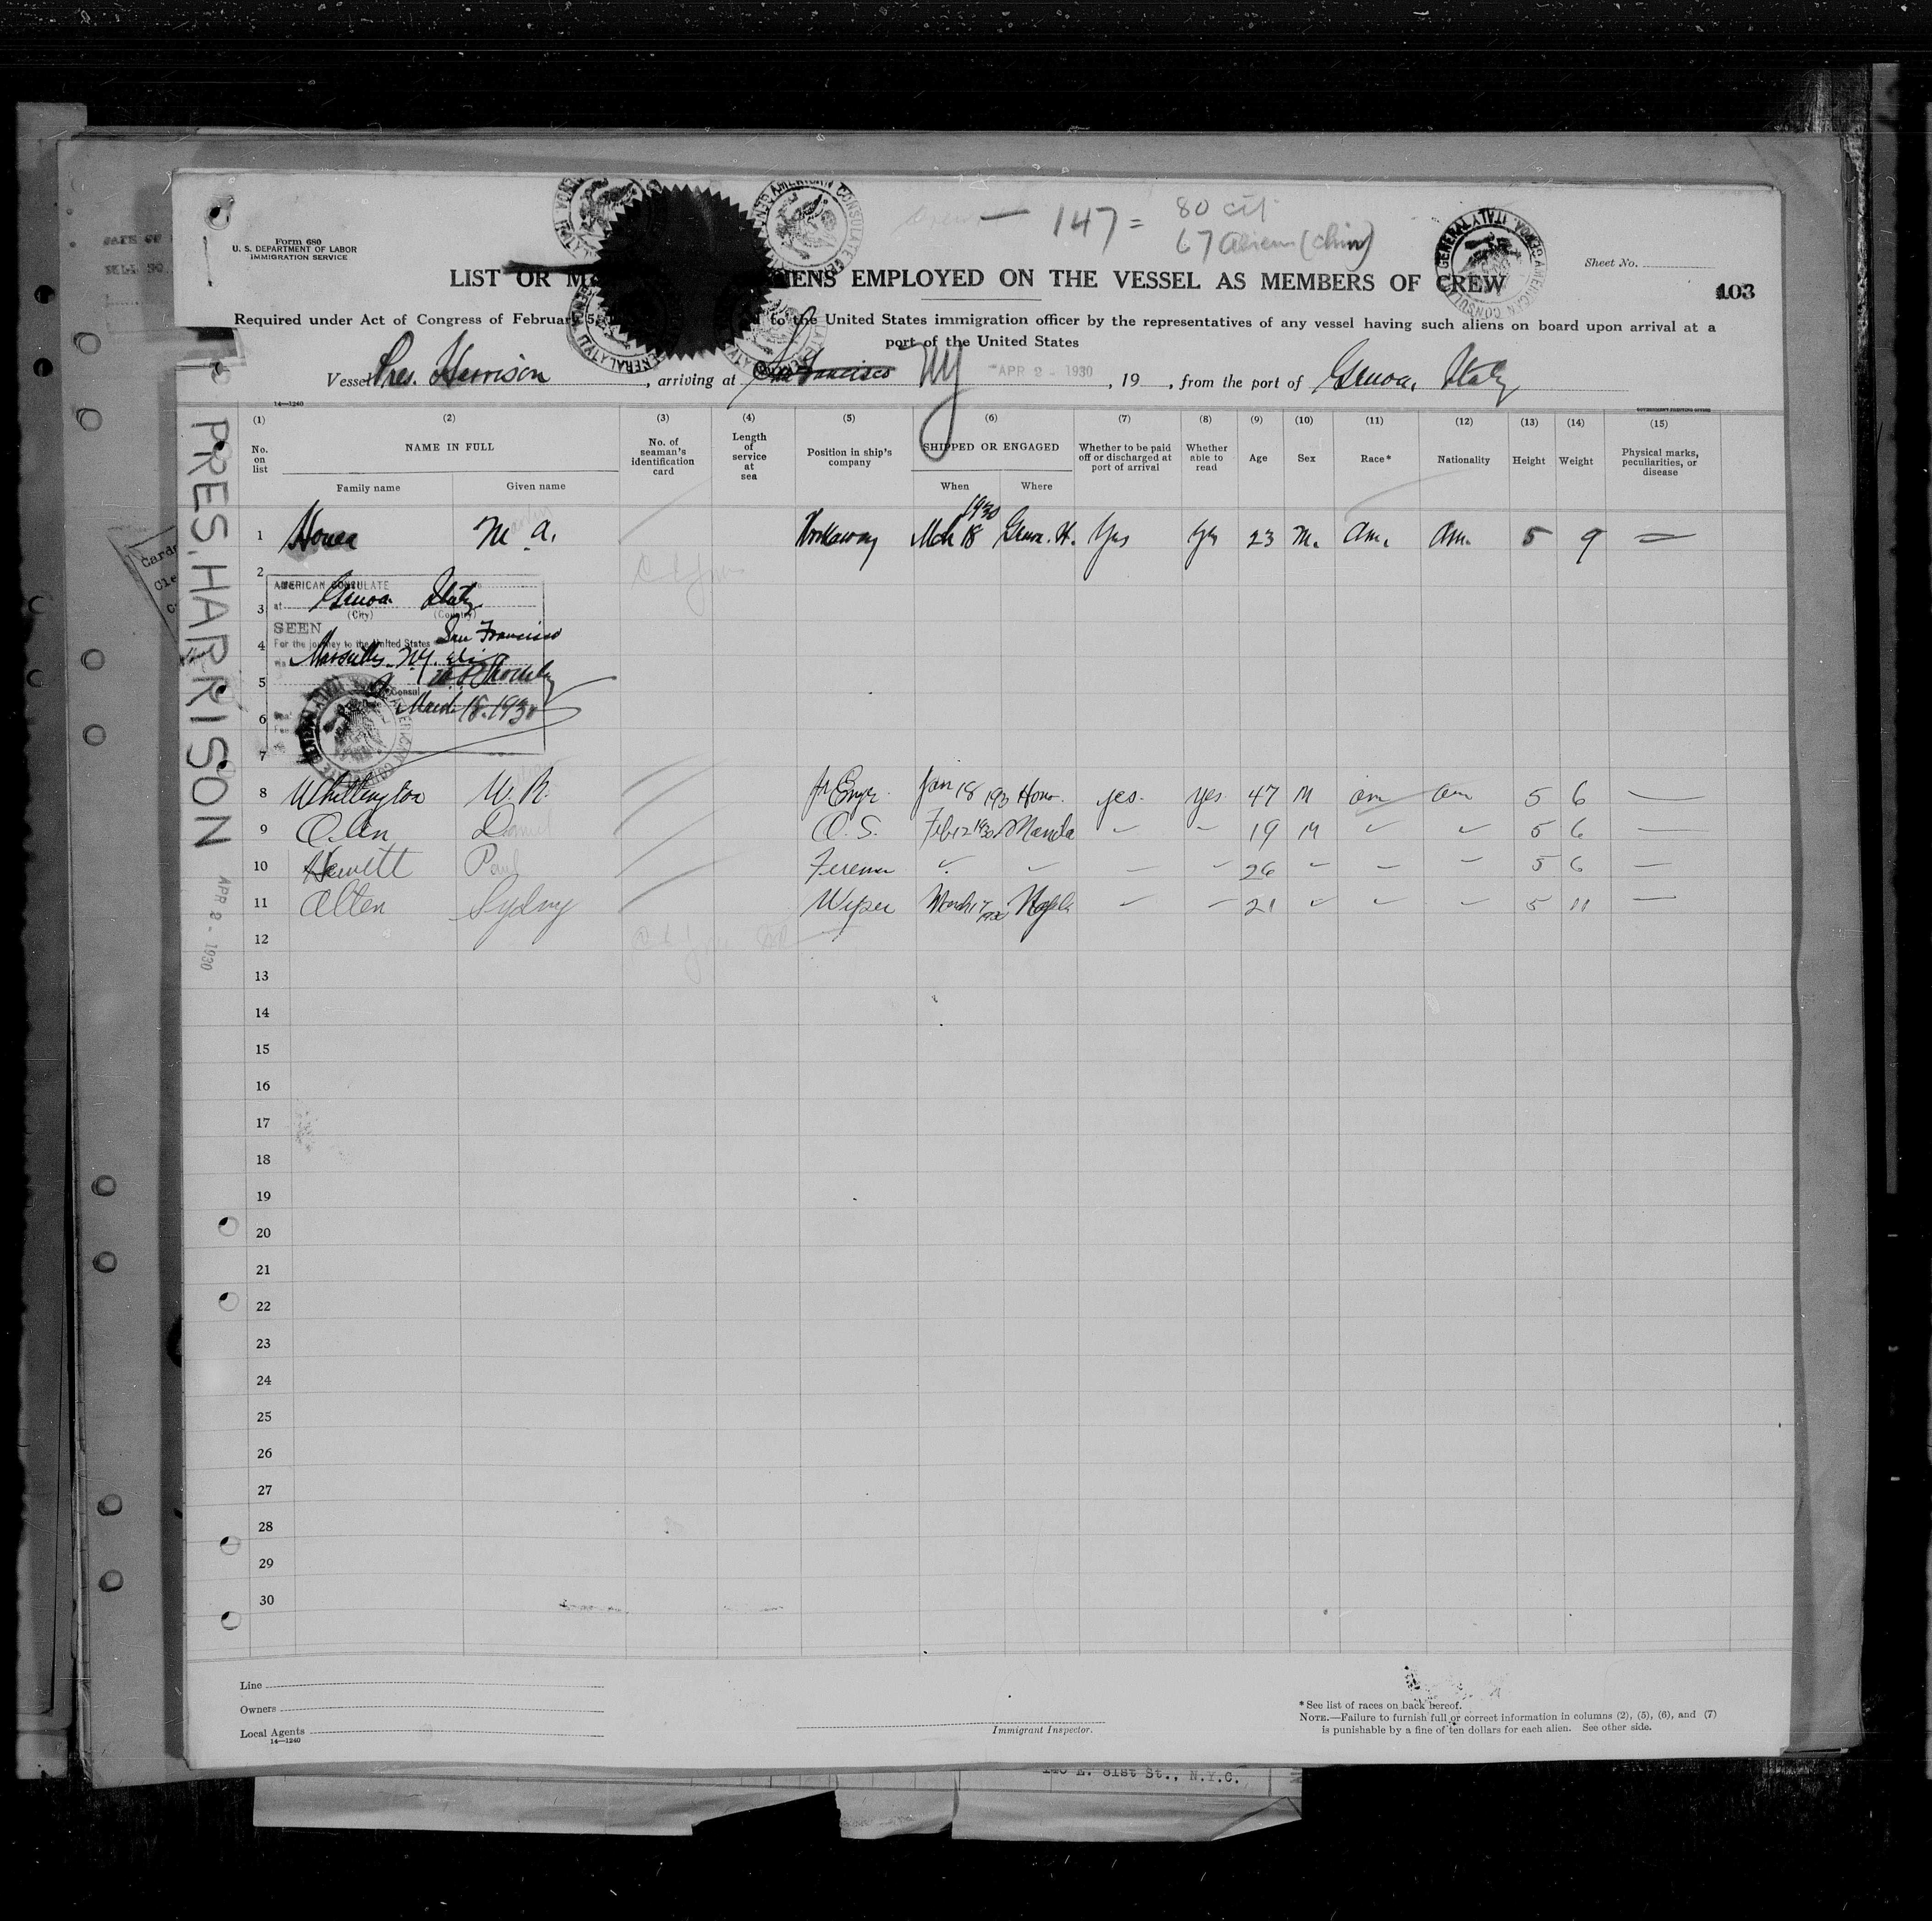 Form 680
U. S. DEPARTMENT OF LABOR
IMMIGRATION SERVICE
147 = 80 cit
67 Aliens (Chin)
Sheet No.
LIST OR EMPLOYED ON THE VESSEL AS MEMBERS OF CREW
103
Required under Act of Congress of February 5, to the United States immigration officer by the representatives of any vessel having such aliens on board upon arrival at a
port of the United States
Vessel Pres. Harrison, arriving at San Francisco NY APR 2 - 1930, 19, from the port of Genoa, Italy
14—1240
GOVERNMENT PRINTING OFFICE
(1) (2) (3) (4) (5) (6) (7) (8) (9) (10) (11) (12) (13) (14) (15)
No. on list
NAME IN FULL
Family name
Given name
No. of seaman's identification card
Length of service at sea
Position in ship's company
SHIPPED OR ENGAGED
When
Where
Whether to be paid off or discharged at port of arrival
Whether able to read
Age
Sex
Race*
Nationality
Height
Weight
Physical marks, peculiarities, or disease
1 M. A. Workaway Mch 18 1930 Genoa. It. Yes yes 23 M. Am. Am. 5 9 —
2
AMERICAN CONSULATE
3 at Genoa Italy
(City) (Country)
SEEN
4 For the journey to the United States San Francisco
Marseilles N.Y.
5
Consul
6 March 18, 1930
7
8 Whittington W. R. Jr Engr. Jan 18 193 Hono. yes. yes 47 M am am 5 6 —
9 Olin Daniel O. S. Feb 12 1930 Manila 19 M 5 6 —
10 Hewitt Paul Fireman 26 5 6 —
11 Alten Sydney Wiper March 17 Naples 21 5 11 —
12
13
14
15
16
17
18
19
20
21
22
23
24
25
26
27
28
29
30
PRES. HARRISON
APR 2 - 1930
Line
Owners
Local Agents
14—1240
Immigrant Inspector.
*See list of races on back hereof.
NOTE.—Failure to furnish full or correct information in columns (2), (5), (6), and (7)
is punishable by a fine of ten dollars for each alien. See other side.
140 E. 81st St., N.Y.C.